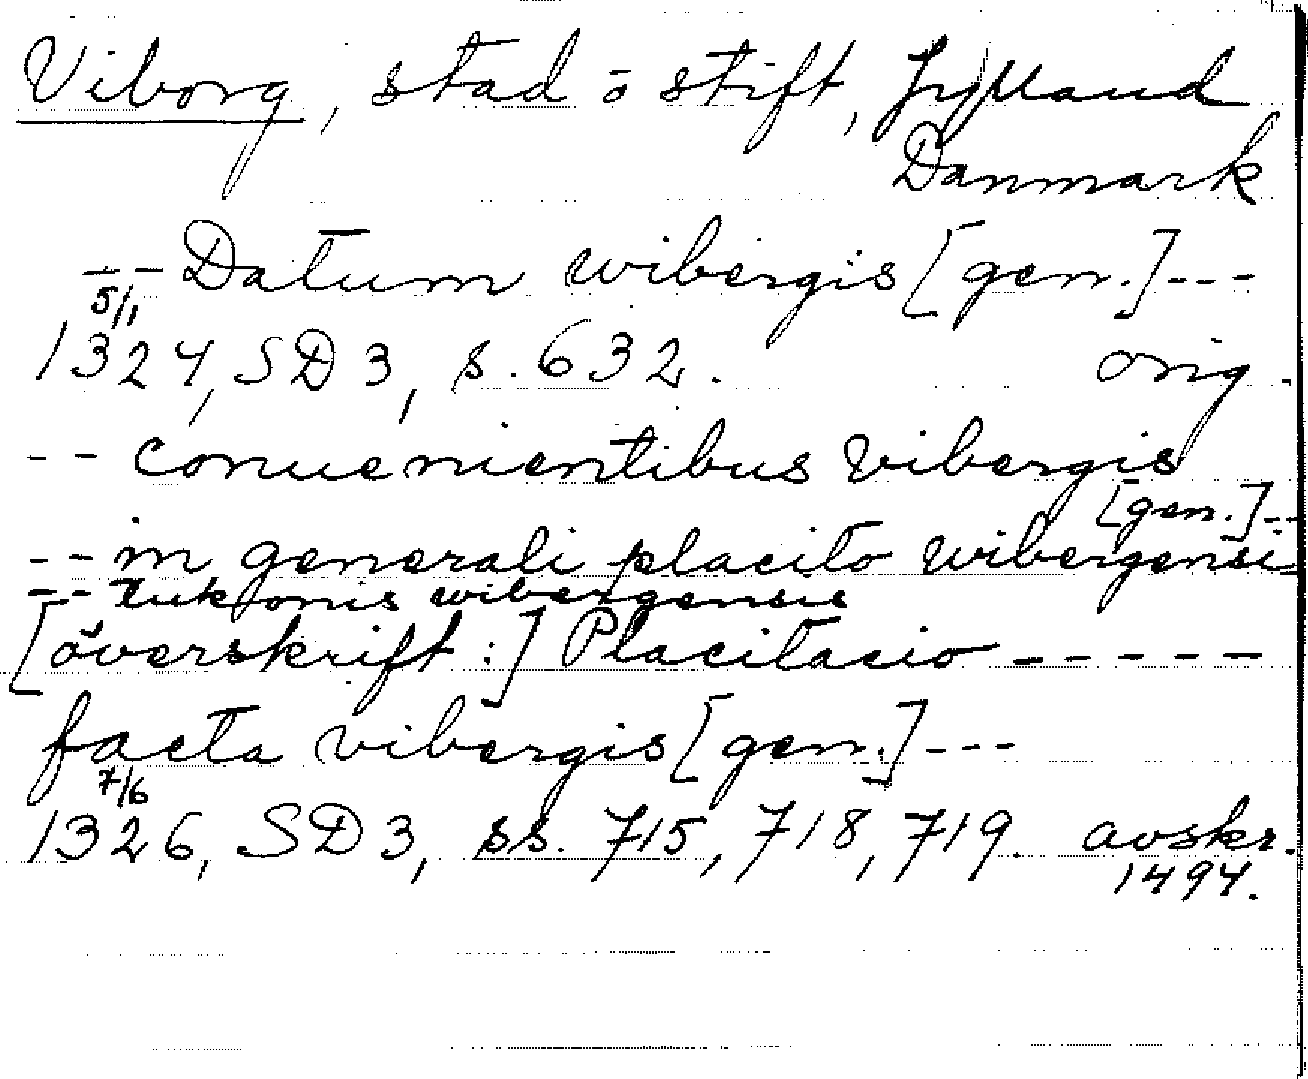 Viborg, stad o stift, Jylland
Danmark
-- Datum wibergis [gen.] ---
5/1
1324, SD 3, s. 632. orig.
-- conuenientibus vibergis
[gen.] --
-- in generali placito wibergensi
-- tukonis wibergensis
[överskrift:] Placitacio -----
facta vibergis [gen.] ---
7/6
1326, SD 3, ss. 715, 718, 719. avskr.
1494.